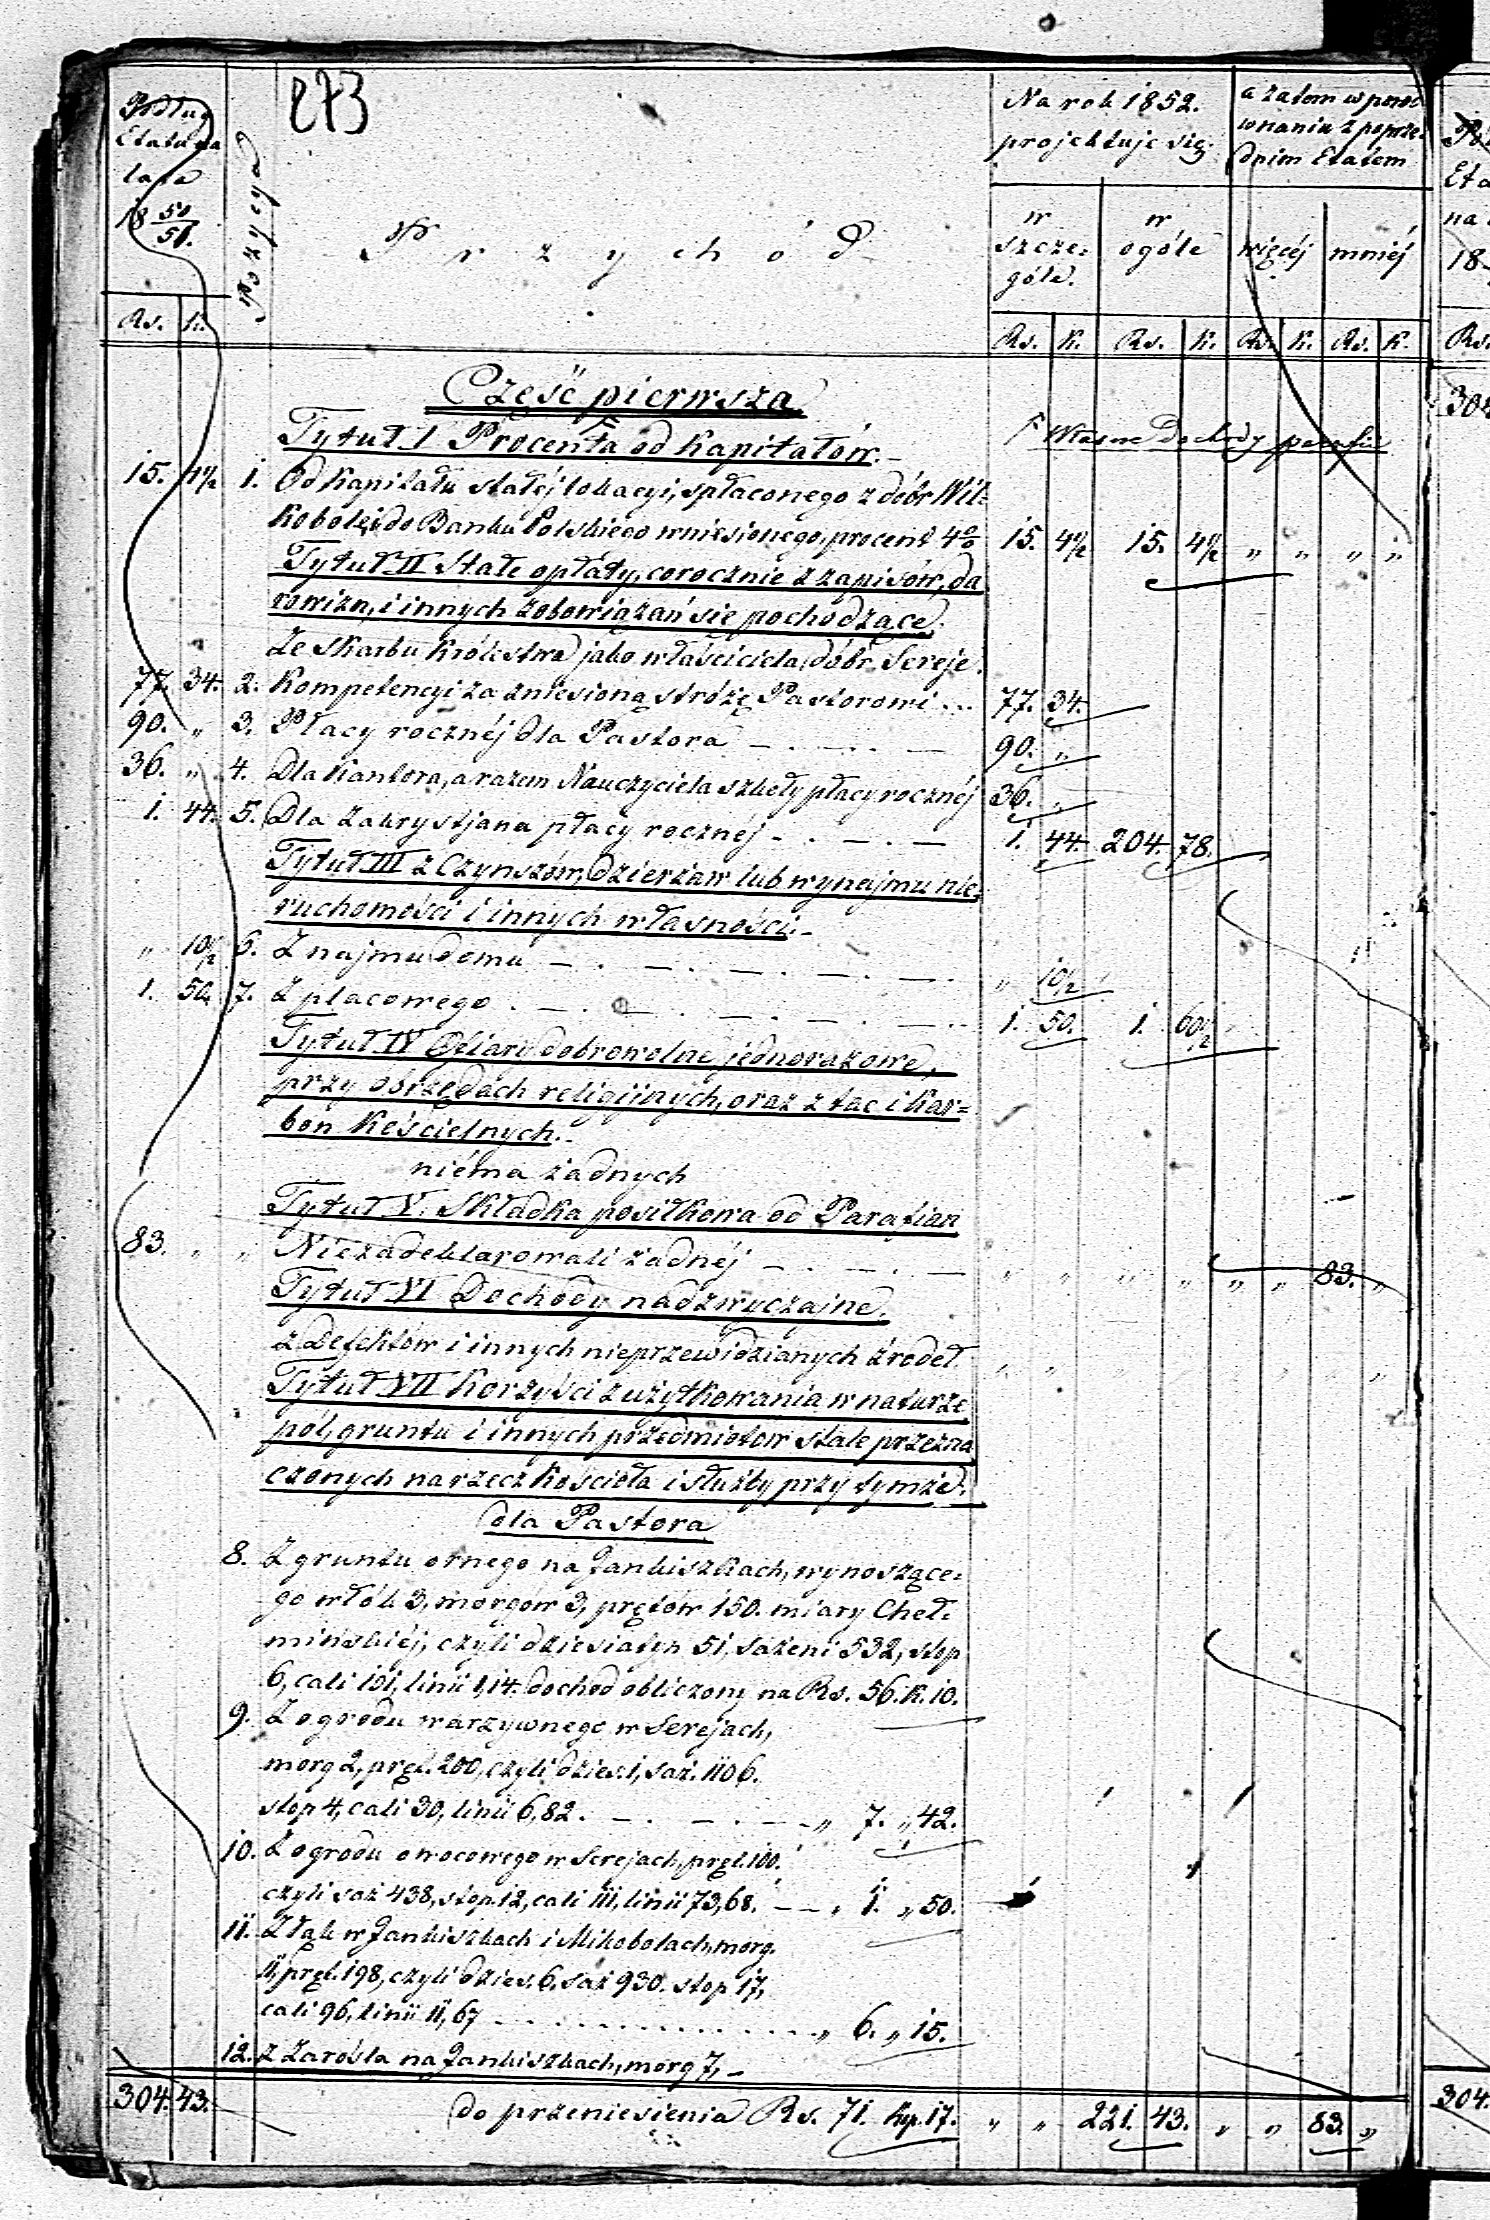 273
Podług
Etatu na
lata
18 50/51.
Rs. K.
Przychód
Na rok 1852.
projektuje się.
a zatem w poró-
wnaniu z poprze-
dnim Etatem
w
szcze-
góle.
w
ogóle
więcéj
mniéj
Rs. K. Rs. K. Rs. K. Rs. K.
Część pierwsza
Tytuł I Procenta od Kapitałów.
Własne Dochody parafii
15. 4½ 1. Od Kapitału stałéj lokacyi, spłaconego z dóbr Wil-
kobole, i do Banku Polskiego wniesionego, procent 4% 15. 4½ 15. 4½ „ „ „ „
Tytuł II Stałe opłaty, corocznie z zapisów, da
rowizn, i innych zobowiązań się pochodzące.
Ze Skarbu Królestwa jako właściciela dóbr Sereje.
77. 34. 2. Kompetencyi za zniesioną stróżę Pastorowi ... 77. 34.
90. „ 3. Płacy rocznéj dla Pastora — . — . — 90. „
36. „ 4. Dla Kantora, a razem Nauczyciela szkoły płacy rocznéj 36. „
1. 44. 5. Dla Zakrystjana płacy rocznéj - . — . — 1. 44. 204. 78.
Tytuł III z Czynszów, dzierżaw lub wynajmu nie-
ruchomości i innych własności.
„ 10½ 6. Z najmu domu — . — . — . — . — „ 10½
1. 50. 7. Z placowego . — . — . — . — . — 1. 50. 1. 60½
Tytuł IV Ofiary dobrowolne, jednorazowe,
przy obrzędach religijnych, oraz z tac i Kar=
bon Kościelnych.
niéma żadnych
Tytuł V. Składka posiłkowa od Parafian
83. „ „ Niezadeklarowali żadnéj — . — . — „ „ „ „ „ „ 83. „
Tytuł VI Dochody nadzwyczajne.
z Defektów i innych nieprzewidzianych źrodeł „ „
Tytuł VII Korzyści z użytkowania w naturze
pól, gruntu i innych przedmiotów stale przezna
czonych na rzecz Kościoła i służby przy tymże.
dla Pastora
8. Z gruntu ornego na Jankiszkach, wynoszące-
go włók 3, morgów 3, prętów 150. miary Cheł-
mińskiéj, czyli dziesiatyn 51, sażeni 532, stop
6, cali 101, linii 1,14. dochod obliczony na Rs. 56. K. 10.
9. Z ogrodu warzywnego w Serejach,
morg 2, pręt. 200, czyli dzies. 1, saż. 1106.
stop 4, cali 30, linii 6,82. — . — . — . „ 7. „ 42.
10. Z ogrodu owocowego w Serejach, pręt. 100.
czyli saż 438, stop. 12, cali 111, linii 73,68. — — „ 1. „ 50.
11. Z łąk w Jankiszkach i Mikobolach, morg.
11, pręt. 198, czyli dzies. 6. saż 930. stop 17,
cali 96, linii 11,67 . . . . . . . . „ 6. „ 15.
12. z Zarośla na Jankiszkach, morg 7, —
304. 43. do przeniesienia Rs. 71. kop. 17. „ „ 221. 43. „ „ 83. „
Eta
na
18
Rs.
304
304.